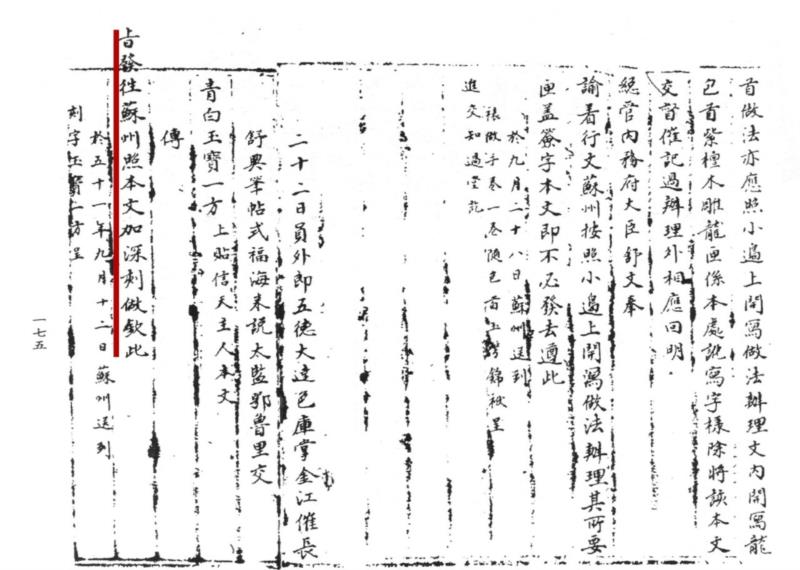 首做法亦應照小邊上開寫做法辦理文內開寫龍
包首紫檀木雕龍匣係本處訛寫字樣除將該本文
交督催記過辦理外相應回明
總管內務府大臣舒文奉
諭着行文蘇州按照小邊上開寫做法辦理其所要
匣蓋簽字本文即不必發去遵此
於九月二十八日蘇州送到
裱做手卷一卷隨包首玉別錦袱呈
進交知過堂訖
二十二日員外郎五德大達色庫掌金江催長
舒興筆帖式福海來說太監鄂魯里交
青白玉寶一方上貼信天主人本文
傳
旨發往蘇州照本文加深刻做欽此
於五十一年九月十二日蘇州送到
刻字玉寶一方呈
一七五